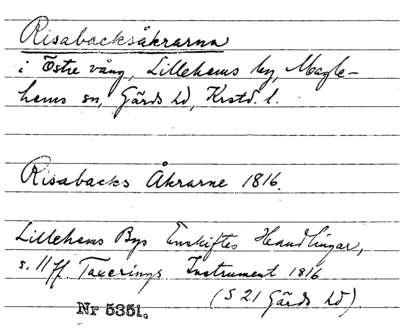 Risabacksåkrarna
i Östre vång, Lillehems by, Magle-
hems sn, Gärds hd, Krstd. l.
Risabacks Åkrarne 1816.
Lillehems Bys Enskiftes Handlingar,
s. 11 ff. Taxerings Instrument 1816
(S 21 Gärds hd).
Nr 5351.